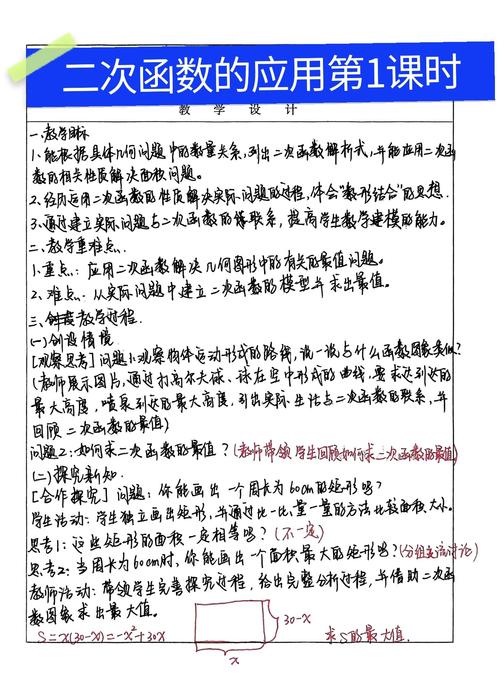 二次函数的应用第1课时
教 学 设 计
一.教学目标
1.能根据具体几何问题中的数量关系,列出二次函数解析式,并能应用二次函
数的相关性质解决面积问题。
2.经历运用二次函数的性质解决实际问题的过程,体会"数形结合"的思想.
3.通过建立实际问题与二次函数的联系,提高学生数学建模的能力。
二.教学重难点.
1.重点:应用二次函数解决几何图形中的有关的最值问题。
2.难点:从实际问题中建立二次函数的模型并求出最值。
三.教学过程.
(一)创设情境
[观察思考]问题1:观察物体运动形式的路线,说一说与什么函数图象类似?
(教师展示图片,通过打高尔夫球、球在空中形成的曲线,要求达到达的
最大高度,喷泉到达的最大高度,引出实际生活与二次函数的联系,并
回顾二次函数的最值)
问题2:如何求二次函数的最值?(教师带领学生回顾如何求二次函数的最值)
(二)探究新知.
[合作探究]问题:你能画出一个周长为60cm的矩形吗?
学生活动:学生独立画出矩形,并通过比一比、量一量的方法比较面积大小。
思考1:这些矩形的面积一定相等吗?(不一定)
思考2:当周长为60cm时,你能画出一个面积最大的矩形吗?(分组交流讨论)
教师活动:带领学生完善探究过程,给出完整分析过程,并借助二次函
数图象求出最大值.
S=x(30-x)=-x²+30x
30-x
求S的最大值.
x